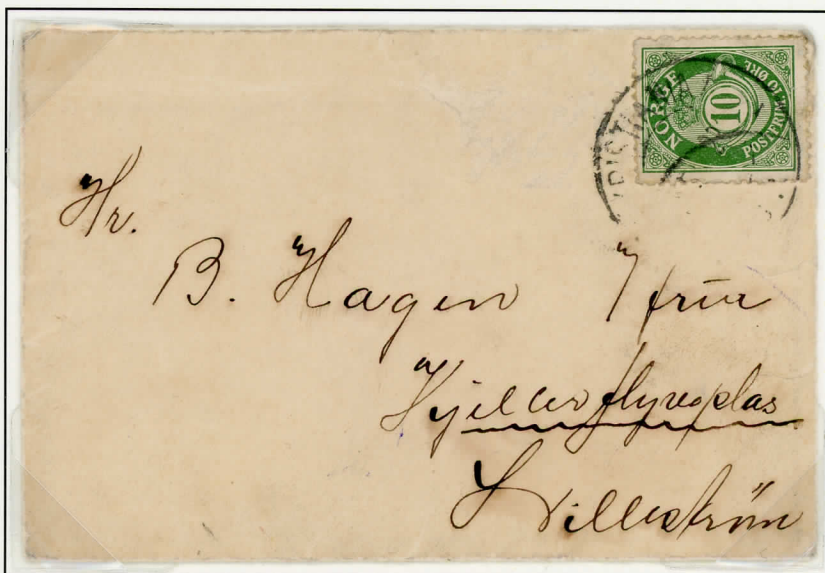 NORGE
POSTFRIM. 10 ØRE
10
Hr.
B. Hagen & frue
Kjeller flyveplas
Lillestrøm